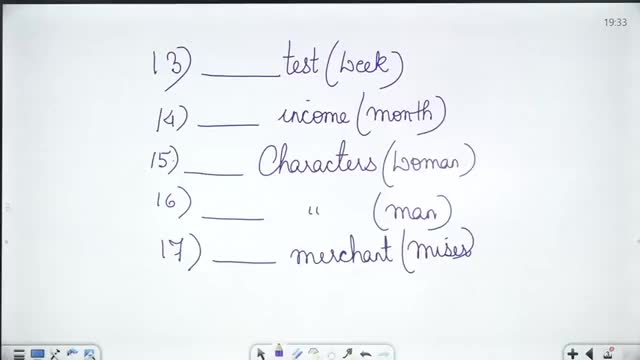 19:33
13) ______ test (week)
14) _____ income (month)
15) _____ Characters (woman)
16) _____ " (man)
17) _____ merchant (mises)